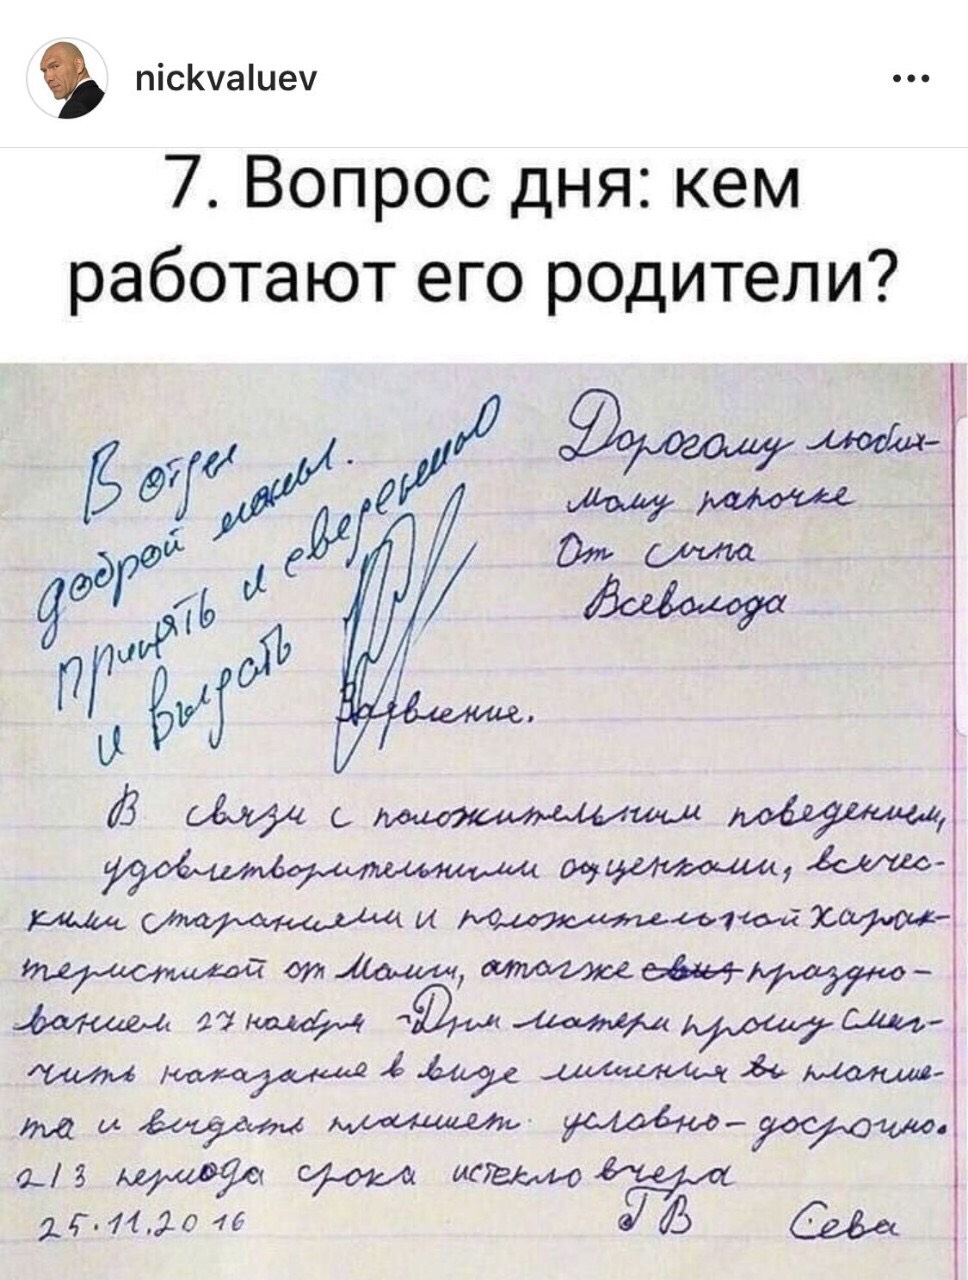 nickvaluev
7. Вопрос дня: кем
работают его родители?
В отдел
доброй мамы.
принять и сведению
и выдать
Дорогому любим-
мому папочке
От сына
Всеволода
Заявление.
В связи с положительным поведением,
удовлетворительными оценками, всячес-
кими стараниями и положительной харак-
теристикой от Мамы, атагже праздно-
ванием 27 ноября Дня матери прошу смяг-
чить наказание в виде лишения планше-
та и выдать планшет условно-досрочно.
2/3 периода срока истекло вчера
25.11.2016 ГВ Сева